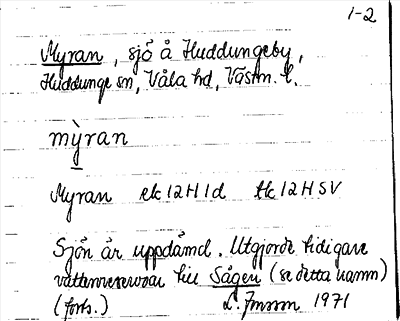 1-2
Myran, sjö å Huddungeby,
Huddunge sn, Våla hd, Västm. l.
mỳran
Myran ek 12H 1d tk 12H SV
Sjön är uppdämd. Utgjorde tidigare
vattenreservoar till Sågen (se detta namn)
(forts.) 1971